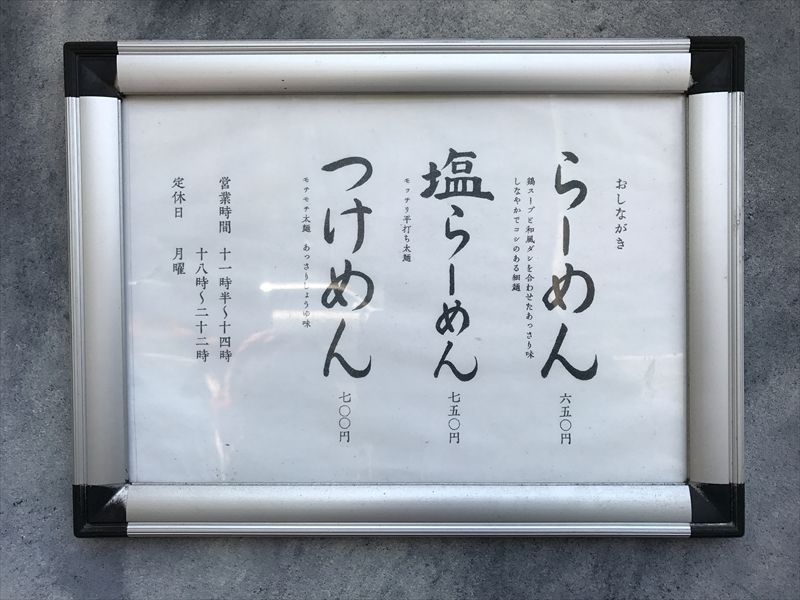 おしながき
らーめん 六五〇円
鶏スープと和風ダシを合わせたあっさり味
しなやかでコシのある細麺
塩らーめん 七五〇円
モッチリ平打ち太麺
つけめん 七〇〇円
モチモチ太麺 あっさりしょうゆ味
営業時間 十一時半〜十四時
十八時〜二十二時
定休日 月曜